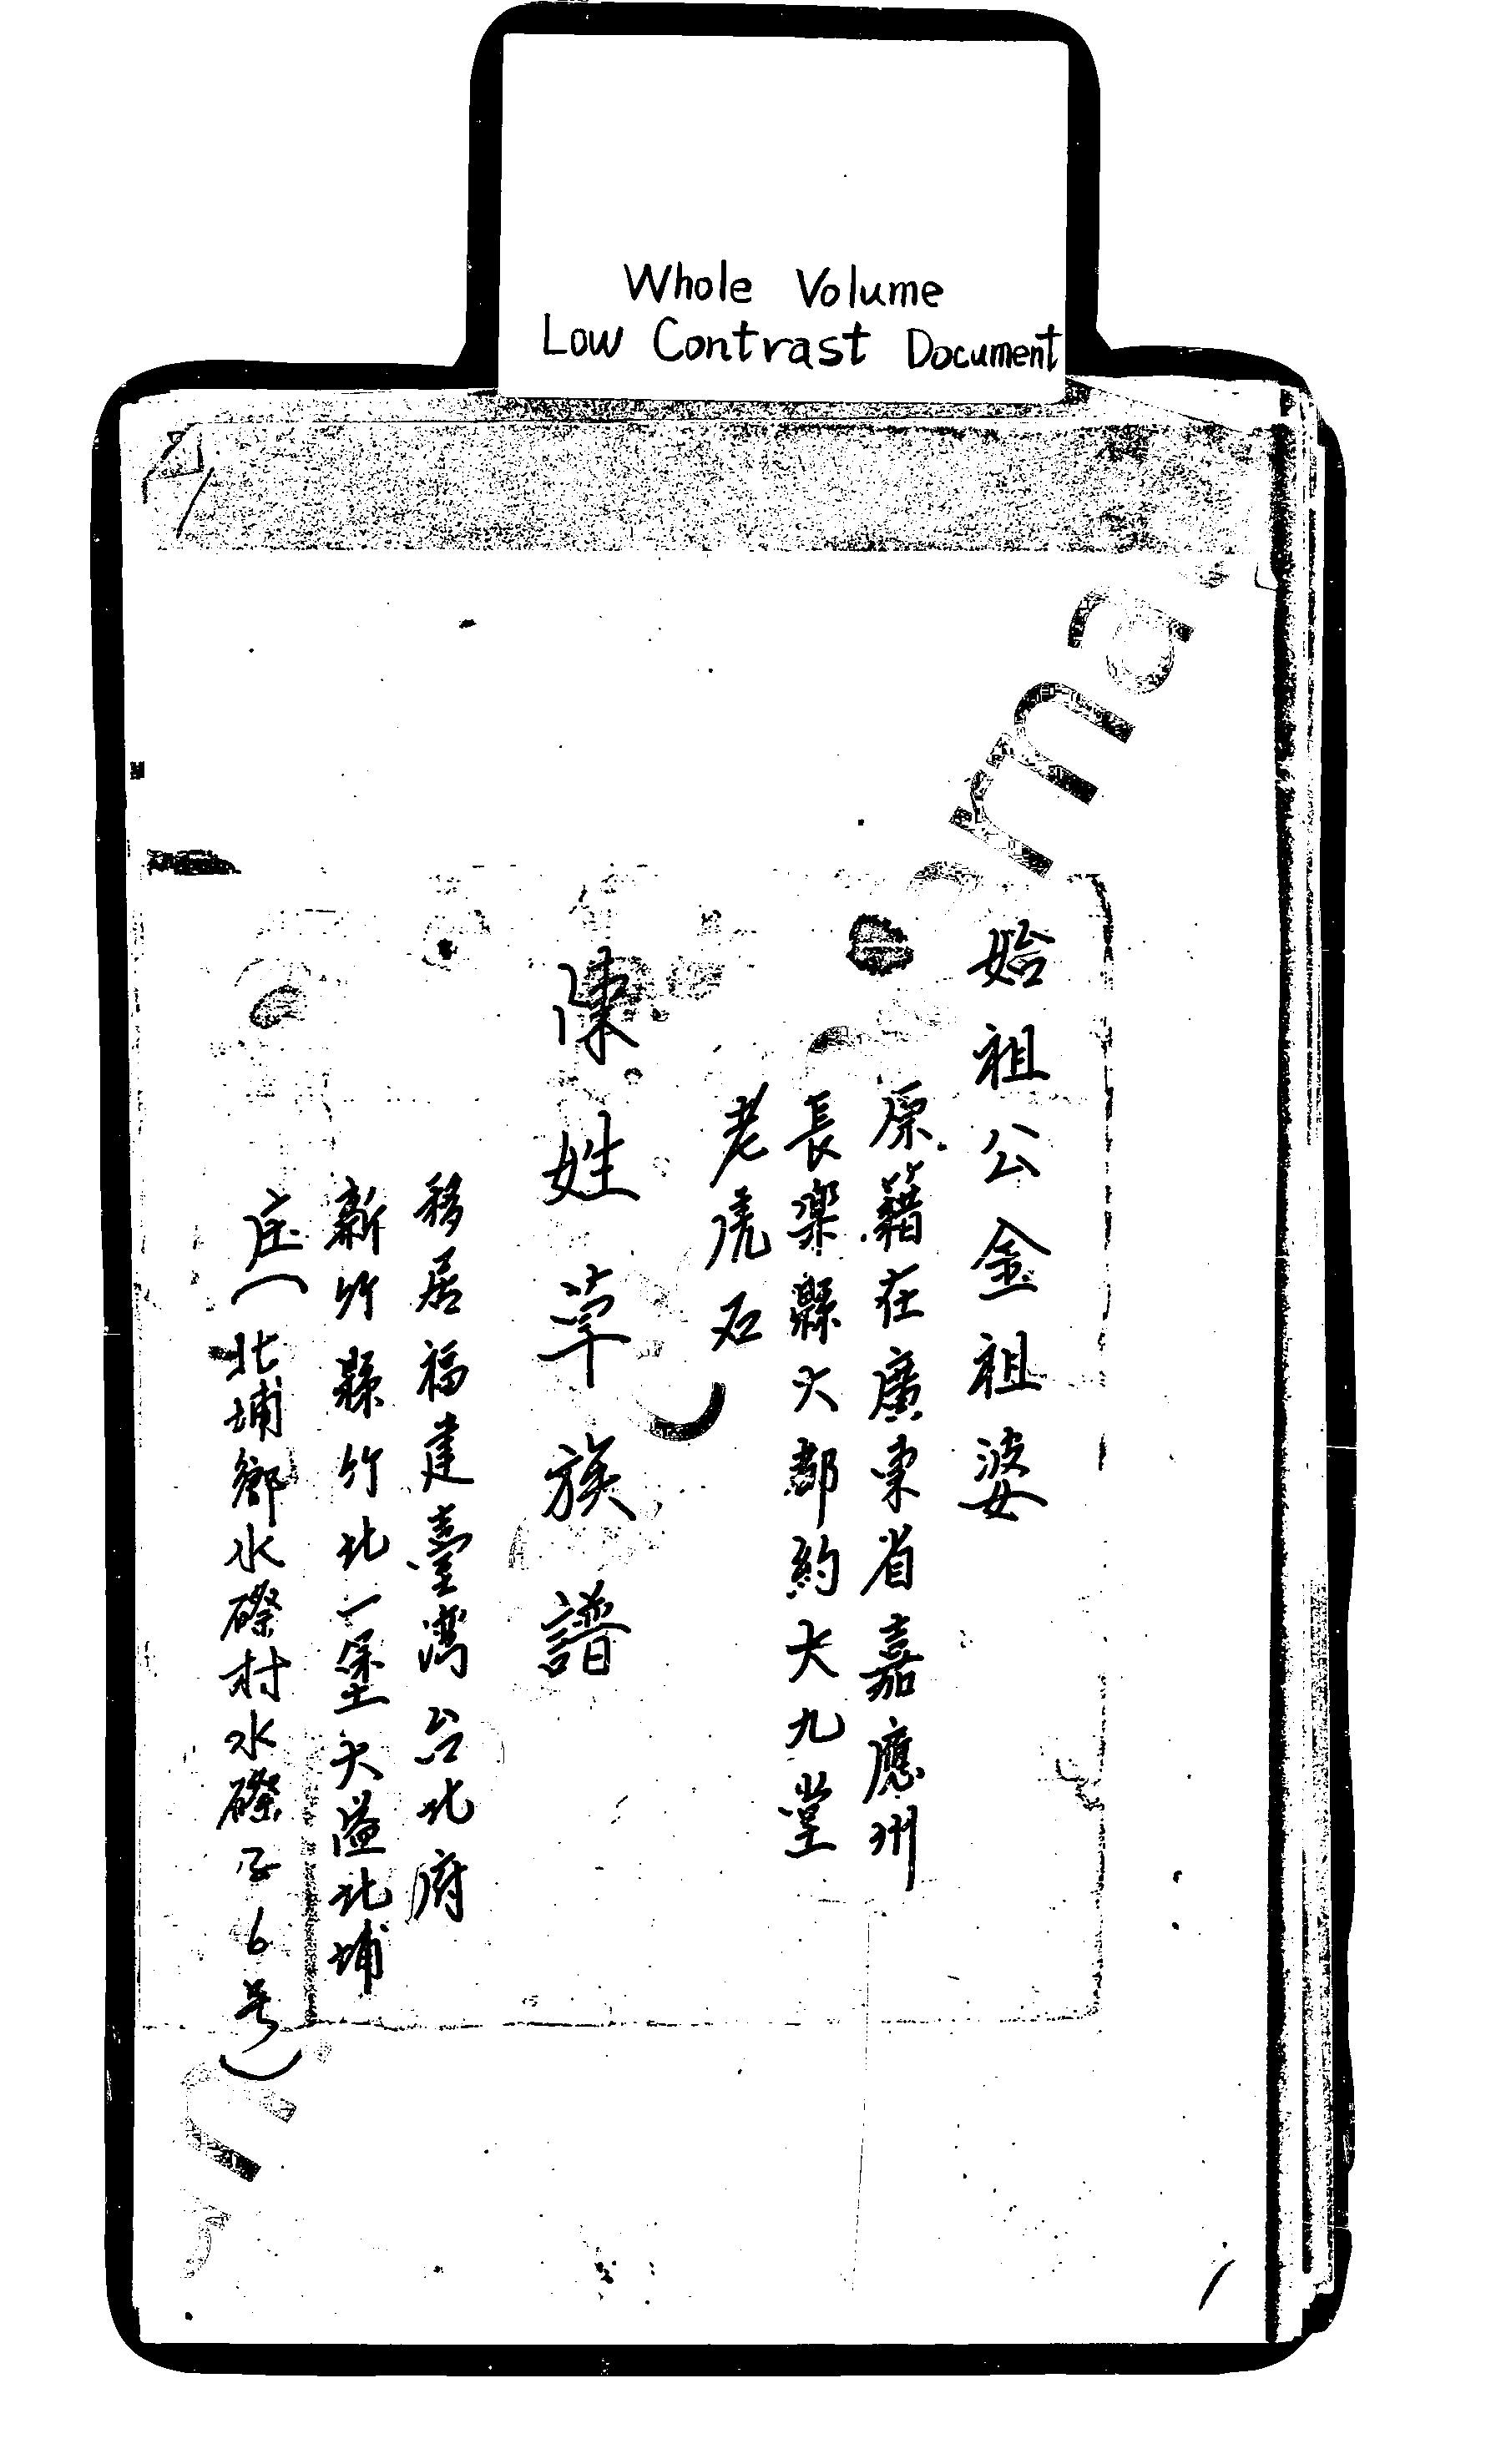 Whole Volume
Low Contrast Document
始祖公金祖婆
原籍在廣東省嘉應州
長楽縣大都約大九堂
老虎石
陳姓草族譜
移居福建臺湾台北府
新竹縣竹北一堡大隘北埔
庄(北埔鄉水磜村水磜子6号)